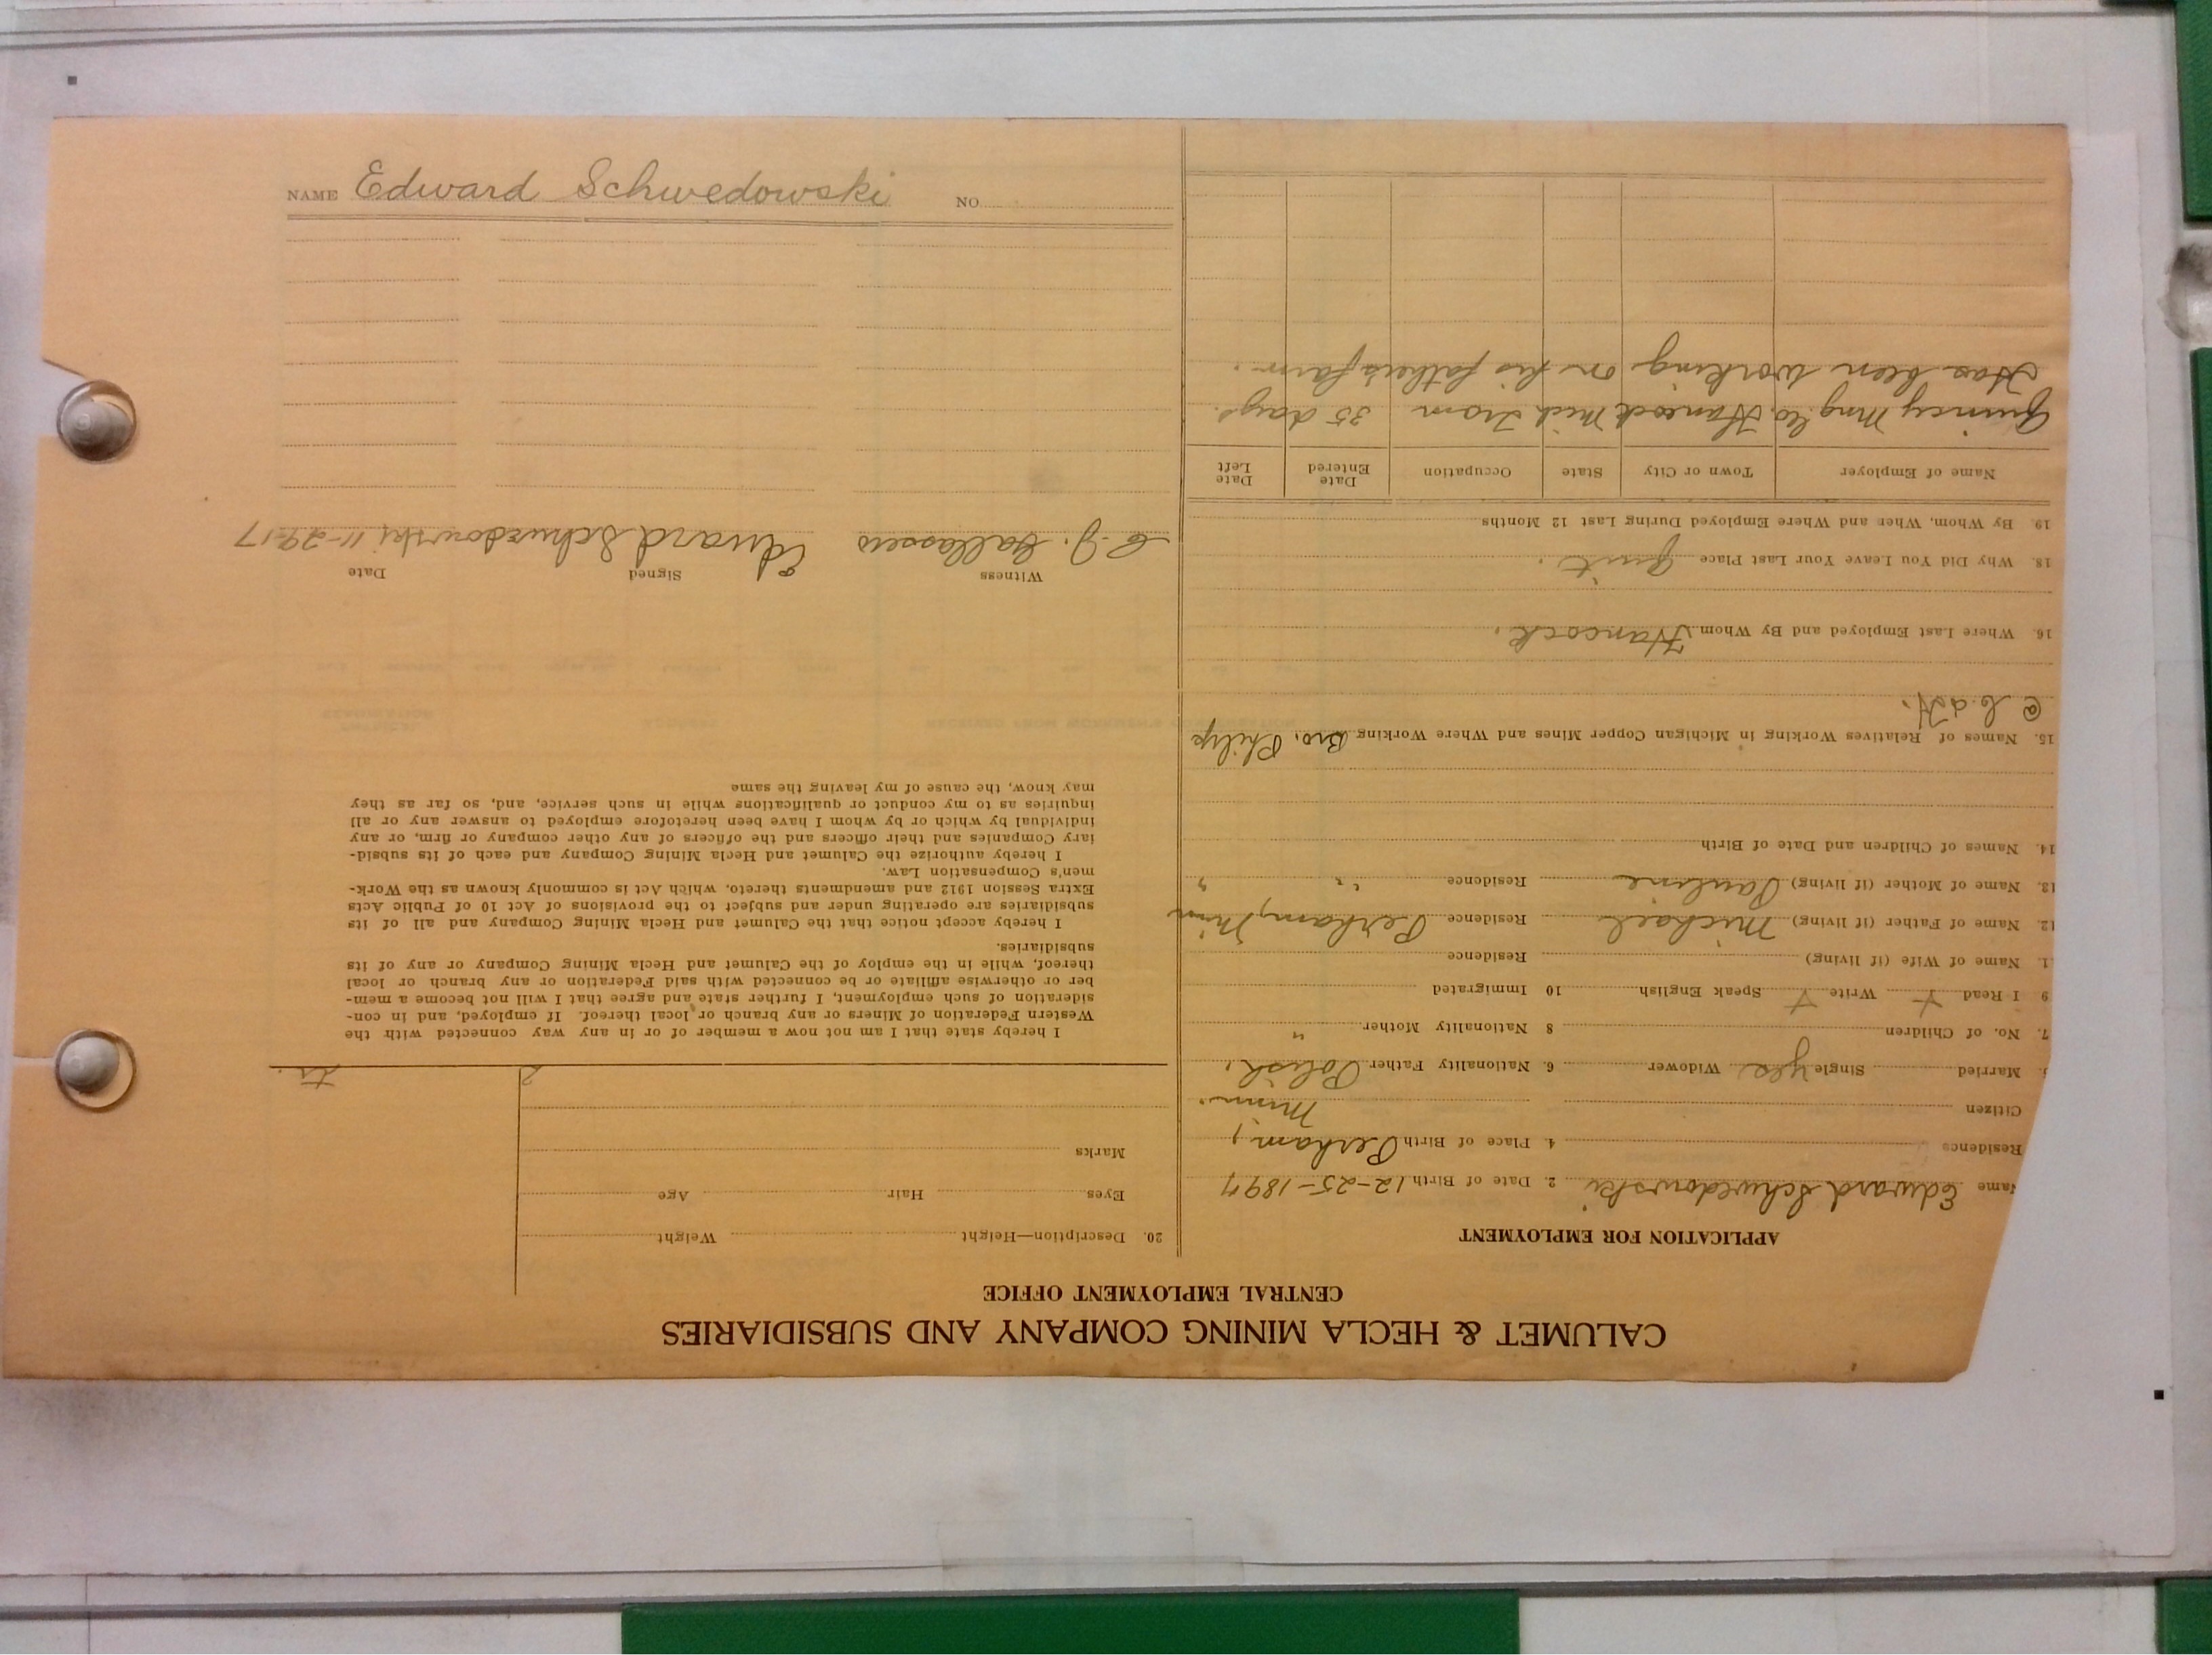 CALUMET & HECLA MINING COMPANY AND SUBSIDIARIES
CENTRAL EMPLOYMENT OFFICE
APPLICATION FOR EMPLOYMENT
Name Edward Schwedowski 2. Date of Birth 12-25-1894
Residence 4. Place of Birth Perham,
Citizen Minn.
Married Single yes Widower 6. Nationality Father Polish.
7. No. of Children 8 Nationality Mother "
9 I Read Y Write Y Speak English 10 Immigrated
1. Name of Wife (if living) Residence
12. Name of Father (if living) Michael Residence Perham, Minn
13. Name of Mother (if living) Pauline Residence " "
14. Names of Children and Date of Birth
15. Names of Relatives Working in Michigan Copper Mines and Where Working Bro. Philip
@ C & H.
16. Where Last Employed and By Whom Hancock.
18. Why Did You Leave Your Last Place Quit.
19. By Whom, When and Where Employed During Last 12 Months
Name of Employer Town or City State Occupation Date Entered Date Left
Quincy Mng Co. Hancock Mich Tram 35 days.
Has been working on his father's farm.
20. Description—Height Weight
Eyes Hair Age
Marks
I hereby state that I am not now a member of or in any way connected with the
Western Federation of Miners or any branch or local thereof. If employed, and in con-
sideration of such employment, I further state and agree that I will not become a mem-
ber or otherwise affiliate or be connected with said Federation or any branch or local
thereof, while in the employ of the Calumet and Hecla Mining Company or any of its
subsidiaries.
I hereby accept notice that the Calumet and Hecla Mining Company and all of its
subsidiaries are operating under and subject to the provisions of Act 10 of Public Acts
Extra Session 1912 and amendments thereto, which Act is commonly known as the Work-
men's Compensation Law.
I hereby authorize the Calumet and Hecla Mining Company and each of its subsid-
iary Companies and their officers and the officers of any other company or firm, or any
individual by which or by whom I have been heretofore employed to answer any or all
inquiries as to my conduct or qualifications while in such service, and, so far as they
may know, the cause of my leaving the same
Witness Signed Date
C. J. Edward Schwedowski 11-29-17
NAME Edward Schwedowski NO.